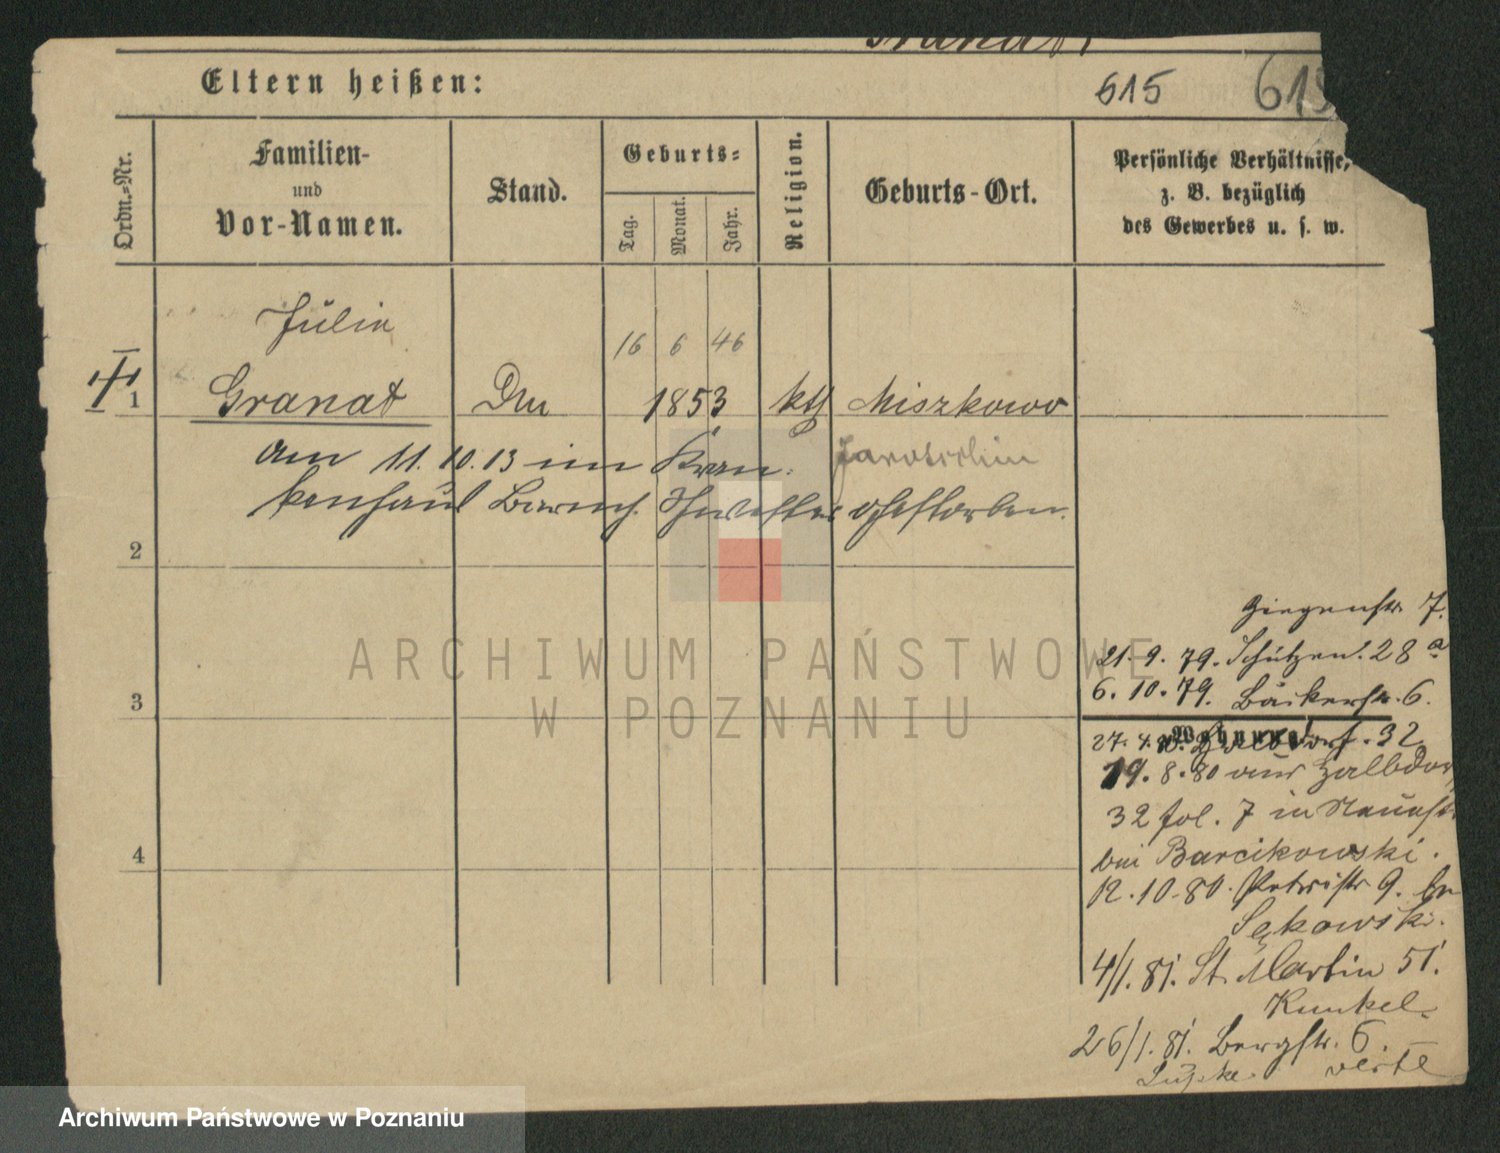 Granat
Eltern heißen:
615
615
Ordn.-Nr.
Familien-
und
Vor-Namen.
Stand.
Geburts-
Tag.
Monat.
Jahr.
Religion.
Geburts-Ort.
Persönliche Verhältnisse,
z. B. bezüglich
des Gewerbes u. s. w.
Julia
16 6 46
1 Granat 1853 kth Miszkowo
am 11.10.13 im Kran- Jarotschin
kenhaus Barmh. Schwester gestorben.
2
Ziegenstr. 7.
21.9.79. Schützenst. 28 a
3
6.10.79. Bäckerstr. 6.
Wohnung
27.4.80. Halbdorf. 32
19.8.80 aus Halbdorf
32 fol. 7 in Neuestr
4
bei Barcikowski.
12.10.80. Petristr 9. bei
Sękowski.
4/1.81. St. Martin 51.
Kunkel.
26/1.81. Bergstr. 6.
verte
ARCHIWUM PAŃSTWOWE
W POZNANIU
Archiwum Państwowe w Poznaniu